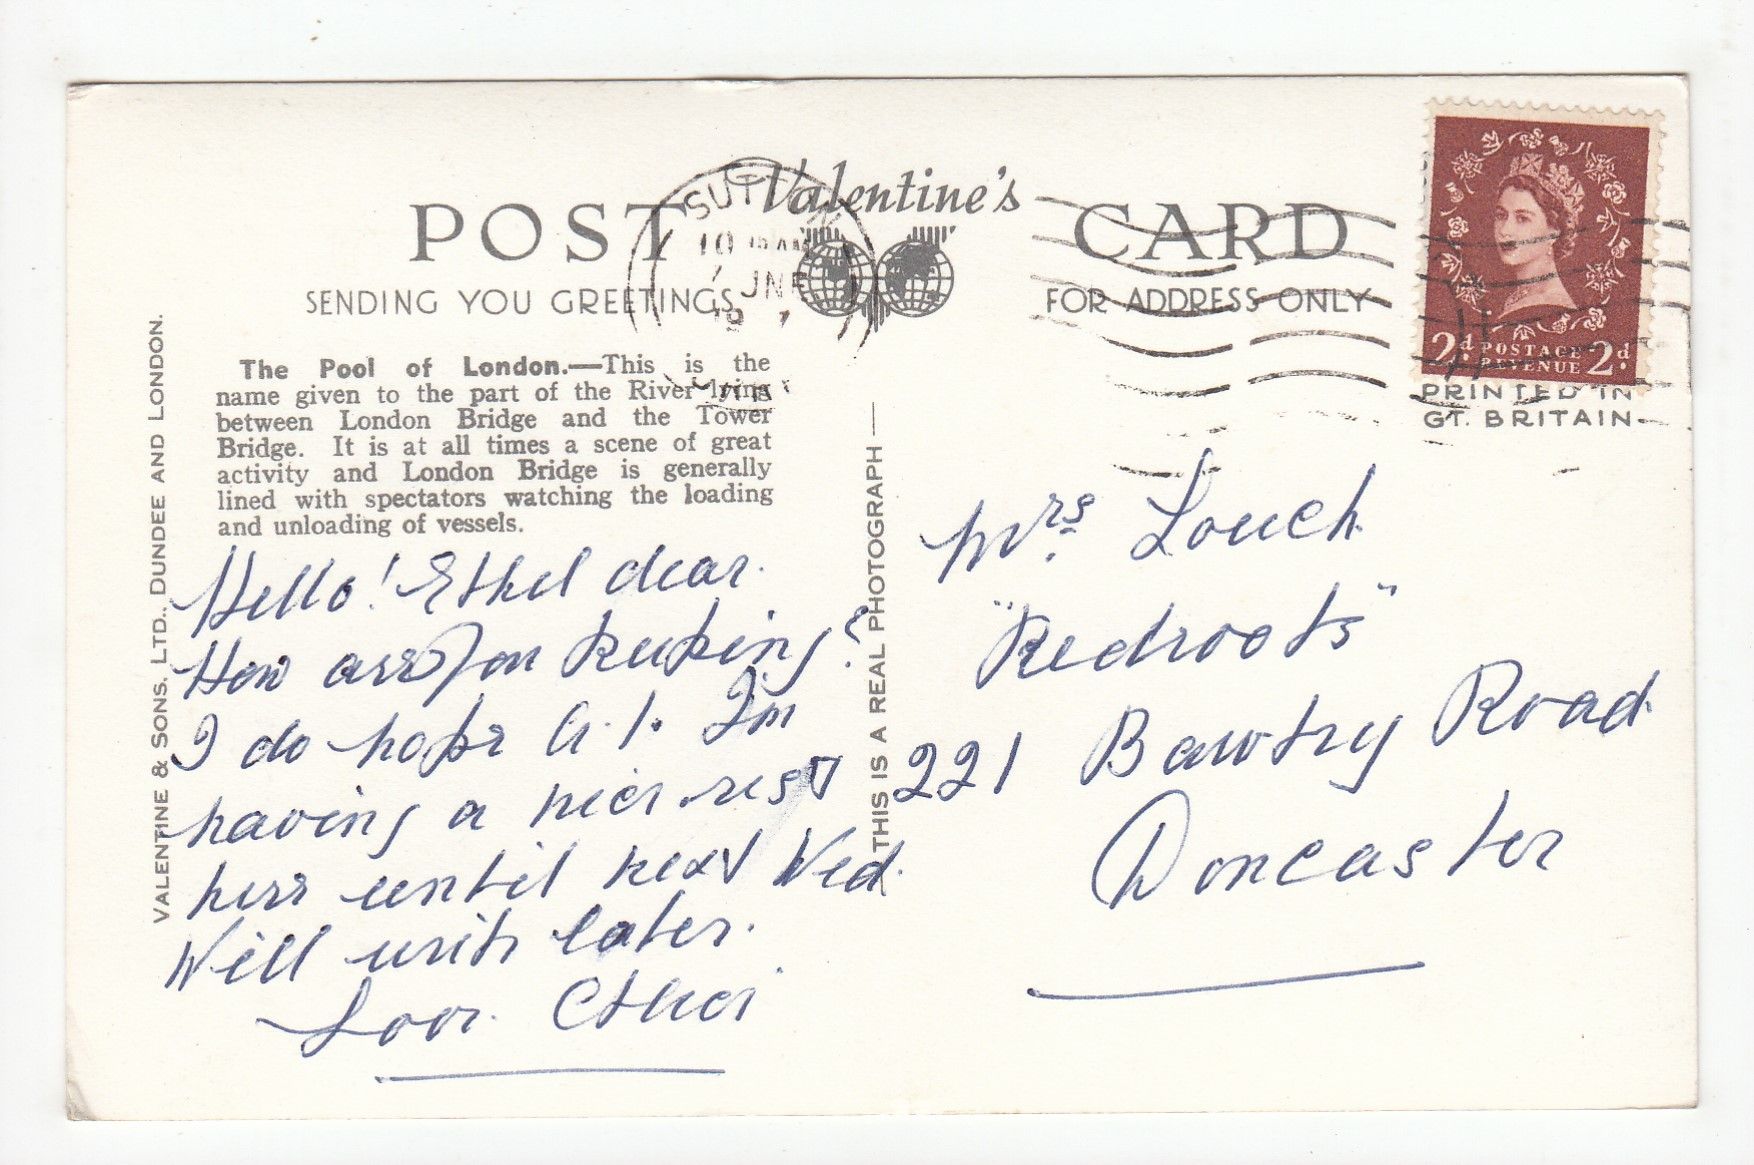 POST Valentine's CARD
SENDING YOU GREETINGS
FOR ADDRESS ONLY
SUTTON
10 AM
JNE
19
2d. POSTAGE REVENUE 2d.
PRINTED IN
GT. BRITAIN.
The Pool of London.—This is the
name given to the part of the River lying
between London Bridge and the Tower
Bridge. It is at all times a scene of great
activity and London Bridge is generally
lined with spectators watching the loading
and unloading of vessels.
VALENTINE & SONS. LTD., DUNDEE AND LONDON.
THIS IS A REAL PHOTOGRAPH
Hello! Ethel dear.
How are you keeping?
I do hope A.1. I'm
having a nice rest
here until next Wed.
Will write later.
Love.
Mrs. Louch
"Redroofs"
221 Bawtry Road
Doncaster